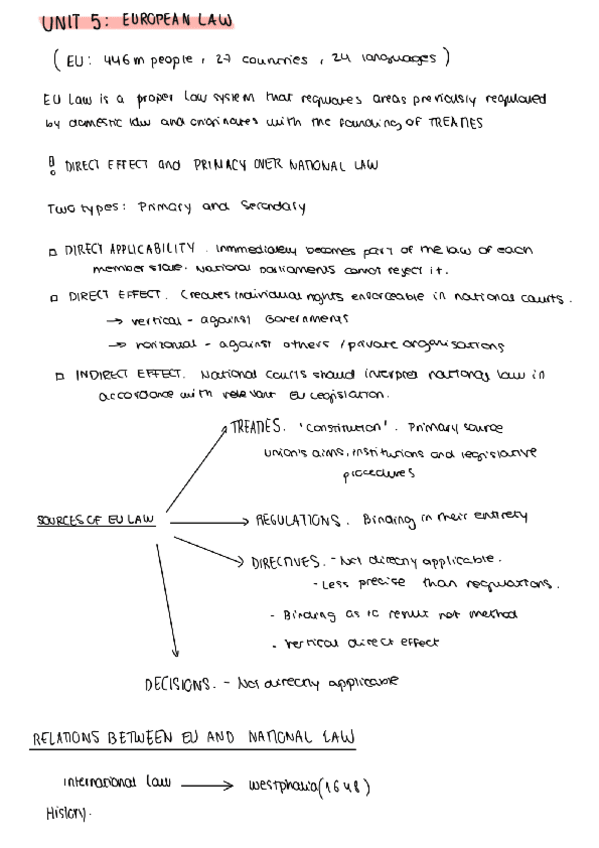 UNIT 5: EUROPEAN LAW
(EU: 446m people, 27 countries, 24 languages)
EU Law is a proper Law system that regulates areas previously regulated
by domestic law and originates with the founding of TREATIES
! DIRECT EFFECT and PRIMACY OVER NATIONAL LAW
Two types: Primary and Secondary
□ DIRECT APPLICABILITY. Immediately becomes part of the law of each
member state. National parliaments cannot reject it.
□ DIRECT EFFECT. Creates individual rights enforceable in national courts.
→ vertical - against Governments
→ horizontal - against others / private organisations
□ INDIRECT EFFECT. National Courts should interpret national law in
accordance with relevant EU Legislation.
TREATIES. 'Constitution'. Primary source
Union's aims, institutions and legislative
procedures
SOURCES OF EU LAW
REGULATIONS. Binding in their entirety
DIRECTIVES. - Not directly applicable.
- Less precise than regulations.
- Binding as to result not method
- Vertical direct effect
DECISIONS. - Not directly applicable
RELATIONS BETWEEN EU AND NATIONAL LAW
International Law → Westphalia (1648)
History.